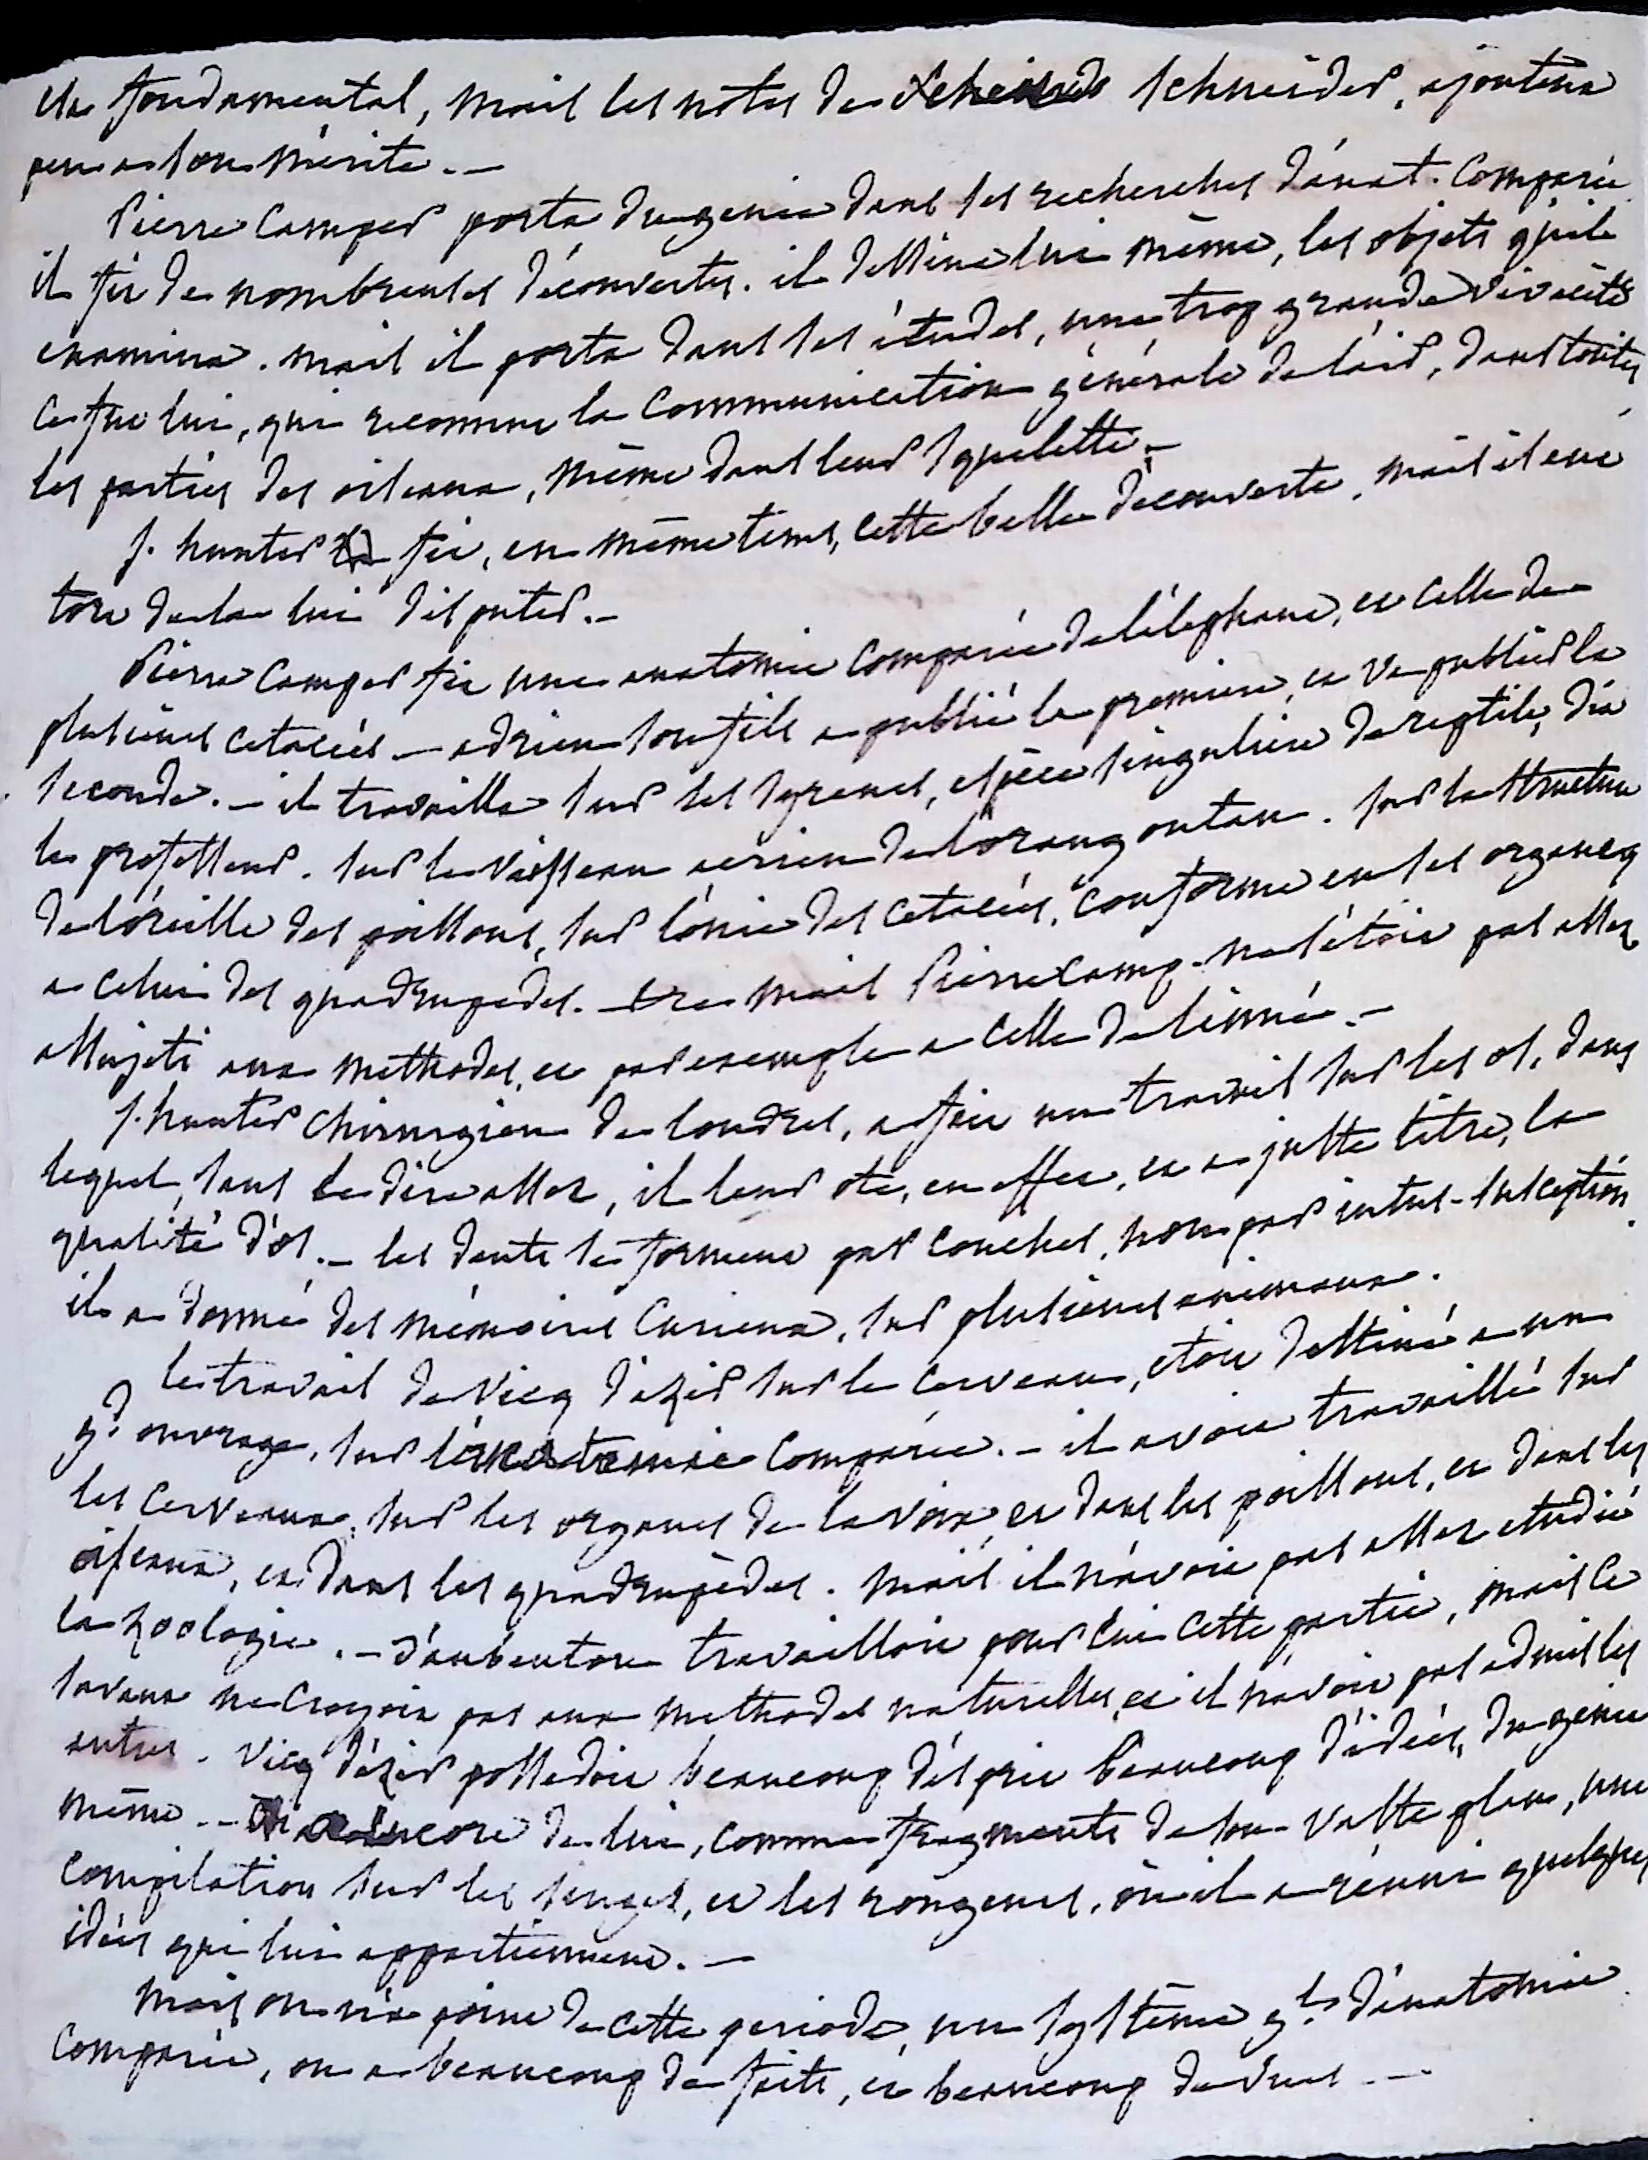 est fondamental, mais les notes de Schneider, ajoutent
peu a son mérite. —
Pierre Camper porta du genie dans ses recherches d'anat. comparée
il fit de nombreuses découvertes. il dessina lui même, les objets qu'il
examina. mais il porta dans ses études, une trop grande vivacité
ce fut lui, qui reconnut la communication générale de l'air, dans toutes
les parties des oiseaux, même dans leur squelette. —
J. hunter fit, en même tems, cette belle découverte, mais il eut
tort de la lui disputer. —
Pierre Camper fit une anatomie comparée de l'éléphant, et celle de
plusieurs cetacées — adrien son fils a publié la premiere, et va publier la
seconde. — il travailla sur les syrenes, espèce singuliere de reptile, dit
le professeur. sur le vaisseau aerien de l'orang outan. sur la structure
de l'oreille des poissons, sur l'ouie des cetacées, conforme en ses organes
a celui des quadrupedes. — mais Pierre Camp. ne s'étoit pas assez
assujeti aux methodes, et par exemple a celle de linné. —
J. hunter chirurgien de londres, a fait un travail sur les os, dans
lequel, sans le dire assez, il leur ote, en effet, et a juste titre, la
qualité d'os. — les dents se forment par couches, non par intus-susception.
il a donné des mémoires curieux, sur plusieurs animaux.
le travail de Vicq d'azir sur le cerveau, étoit destiné a un
gd. ouvrage, sur l'anatomie comparée. — il avoit travaillé sur
les cerveaux, sur les organes de la voix, et dans les poissons, et dans les
oiseaux, et dans les quadrupèdes. mais il n'avoit pas assez etudié
la zoologie. — d'aubenton travailloit pour lui cette partie, mais ce
savant ne croyoit pas aux methodes naturelles, et il n'avoit pas admis les
autres. Vicq d'azir possedoit beaucoup d'esprit beaucoup d'idées, du genie
même. — on a encore de lui, comme fragments de son vaste plan, une
compilation sur les singes, et les rongeurs, où il a réuni quelques
idées qui lui appartiennent. —
mais on n'a point de cette periode, un système gl. d'anatomie
comparée, on a beaucoup de faits, et beaucoup de vues. —